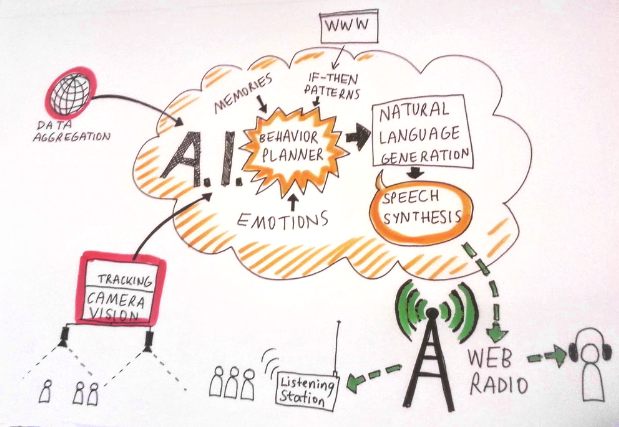 WWW
MEMORIES
IF-THEN
PATTERNS
DATA
AGGREGATION
A.I.
BEHAVIOR
PLANNER
NATURAL
LANGUAGE
GENERATION
EMOTIONS
SPEECH
SYNTHESIS
TRACKING
CAMERA
VISION
Listening
Station
WEB
RADIO